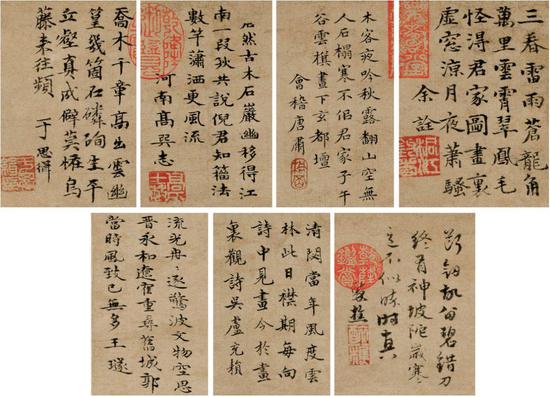 三春雷雨蒼龍角
萬里雲霄翠鳳毛
怪得君家圖畫裏
虛窓涼月夜蕭騷
余詮
木客夜吟秋露翻山空無
人石榻寒不佀君家子午
谷雲旗晝下玄都壇
會稽唐肅
屹然古木石巖幽移得江
南一段秋共說倪君知籀法
數竿瀟洒更風流
河南高巽志
喬木千章髙出雲幽
篁幾箇石磷峋生平
丘壑真成癖莫怪烏
藤來往頻 于思
斷釵碧錯刀
終有神坡陀歲寒
意不似時時真
樵
清閟當年風度雲
林此日襟期每向
詩中見畫今於畫
裏觀詩吳盧充頛
流光冉冉逐驚波文物空思
晉永和遼隺重尋舊城郭
當時風致已無多王璲